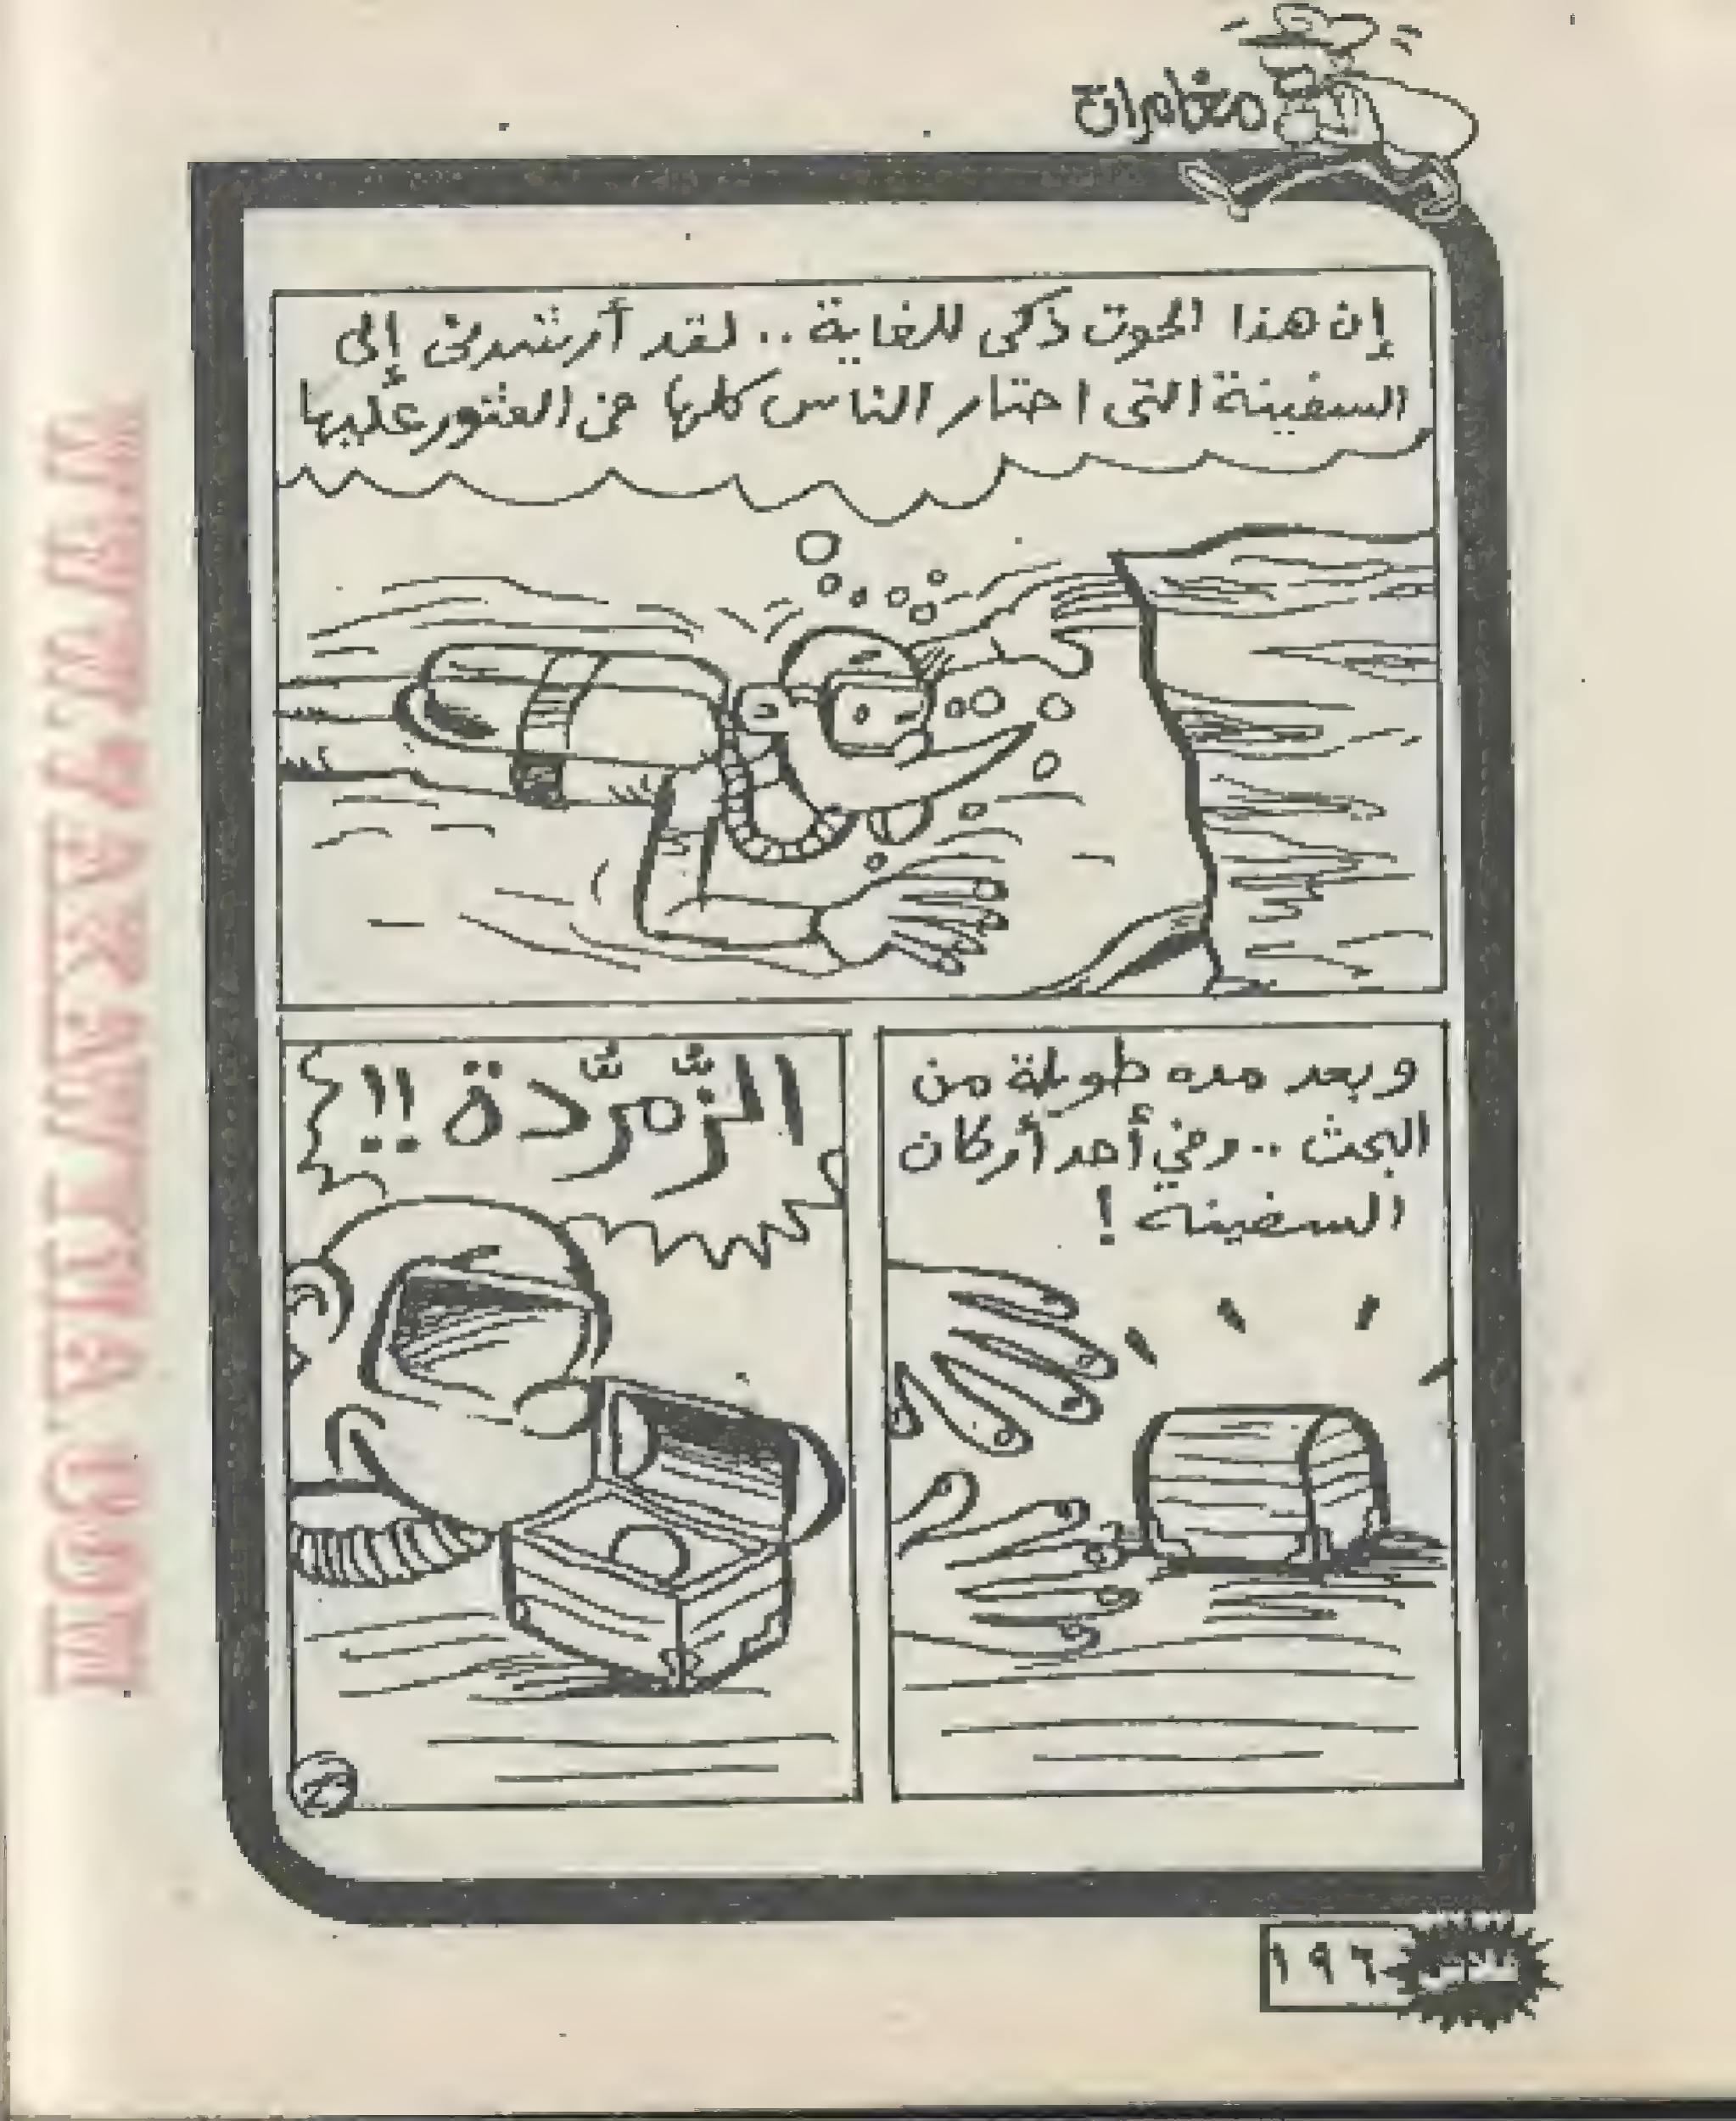 مغامرات
إن هذا الحوت ذكى للغاية .. لقد أرشدنى إلى
السفينة التى احتار الناس كلها فى العثور عليها
وبعد مده طويلة من
البحث .. وفي أحد أركان
السفينه !
الزُّمرُّدة !!
فلاش
١٩٦